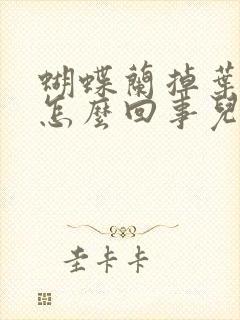 蝴蝶蘭掉葉
怎麼回事兒
圭卡卡